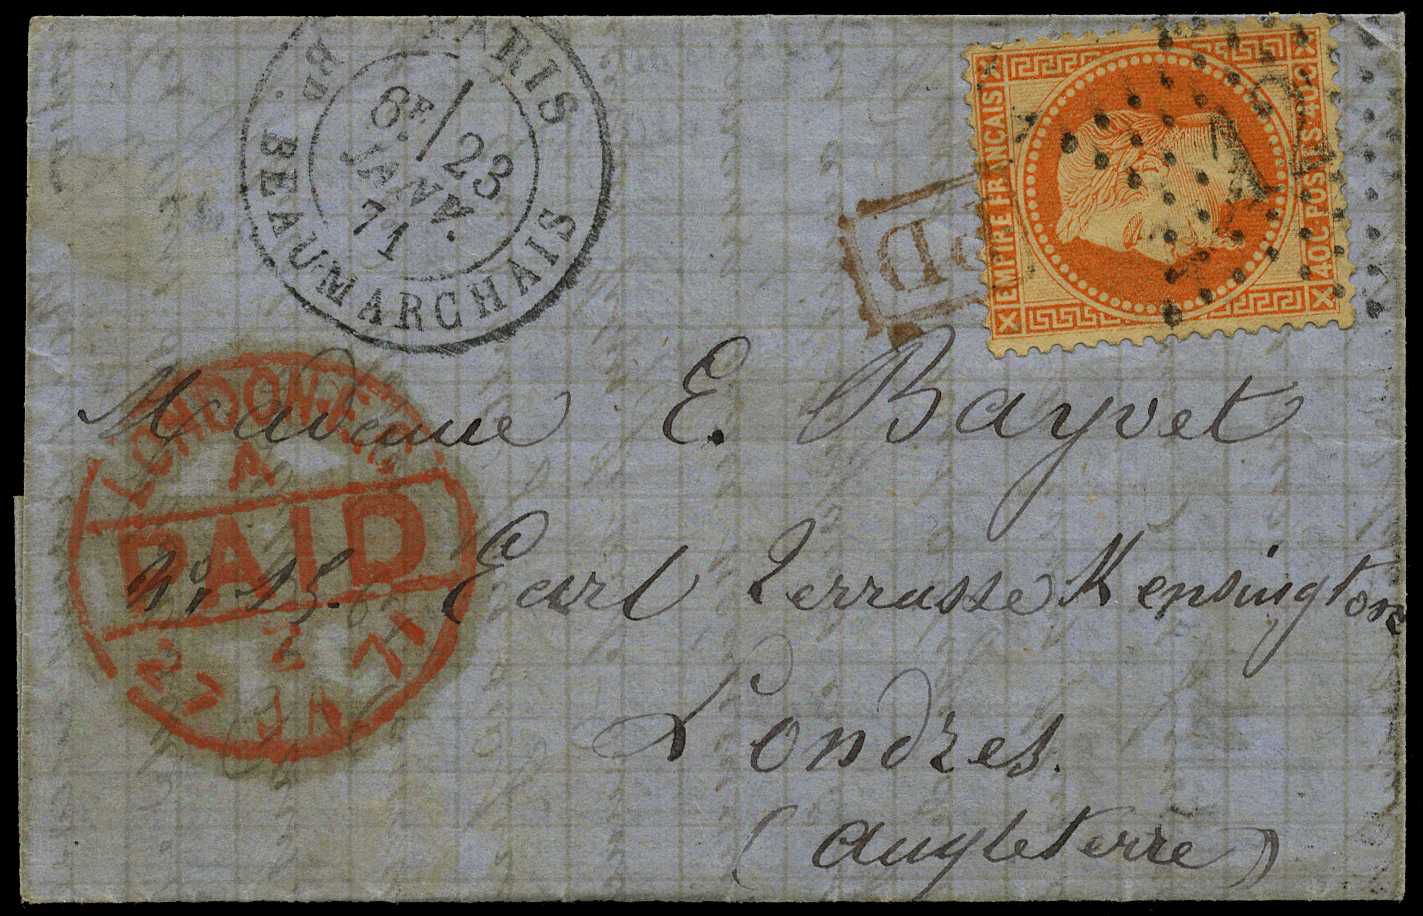 PARIS
Bᴰ. BEAUMARCHAIS
6ᴱ
23
JANV.
71
EMPIRE FRANCAIS
40C POSTES 40C
PD
LONDON
A
PAID
27 JA 71
Madame E. Bayvet
Nº 15. Earl Terrasse Kensington
Londres.
(Angleterre)